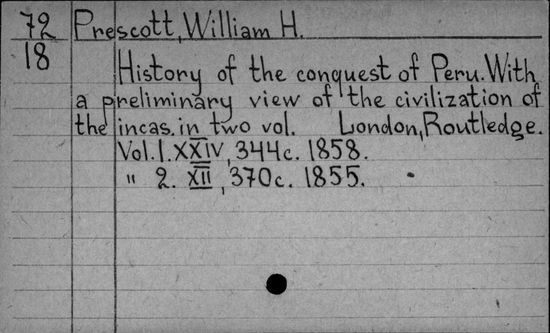 72 Prescott, William H.
18
History of the conquest of Peru. With
a preliminary view of the civilization of
the incas. in two vol. London, Routledge.
Vol. I. XXIV, 344c. 1858.
" 2. XII, 370c. 1855.